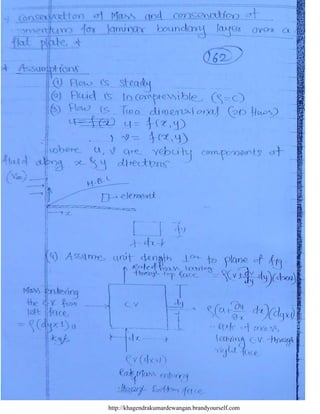 * Conservation of Mass and conservation of
momentum for laminar boundary layer over a
flat plate *
(162)
* Assumptions
(1) Flow is steady
(2) Fluid is Incompressible (ρ=C)
(3) Flow is Two dimensional (2D flow)
u = f(x,y)
, v = f(x,y)
where u, v are velocity components of
fluid along x & y directions
(V∞)
H.B.L
element
→x
dy
dx
(4) Assume unit length ⊥ar to plane of fig
Rate of mass leaving
through top face = ρ(v+∂v/∂y dy)(dx×1)
Mass entering
the C.V from
left face
= ρ(dy×1)u
kg/s
C.V
dy
= ρ(u+∂u/∂x dx)(dy×1)
- rate of mass
leaving C.V. through
right face
dx
ρv(dx×1)
Rate Mass entering
through bottom face
http://khagendrakumardewangan.brandyourself.com